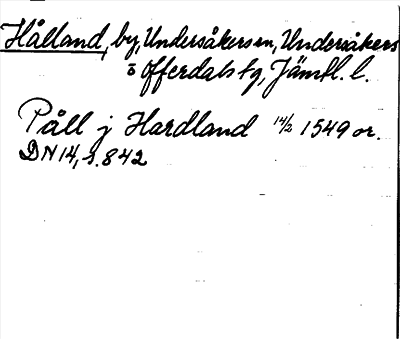 Hålland, by, Undersåkers sn, Undersåkers
o Offerdals tg, Jämtl. l.
Påll j Hardland 14/2 1549 or.
DN 14, s. 842